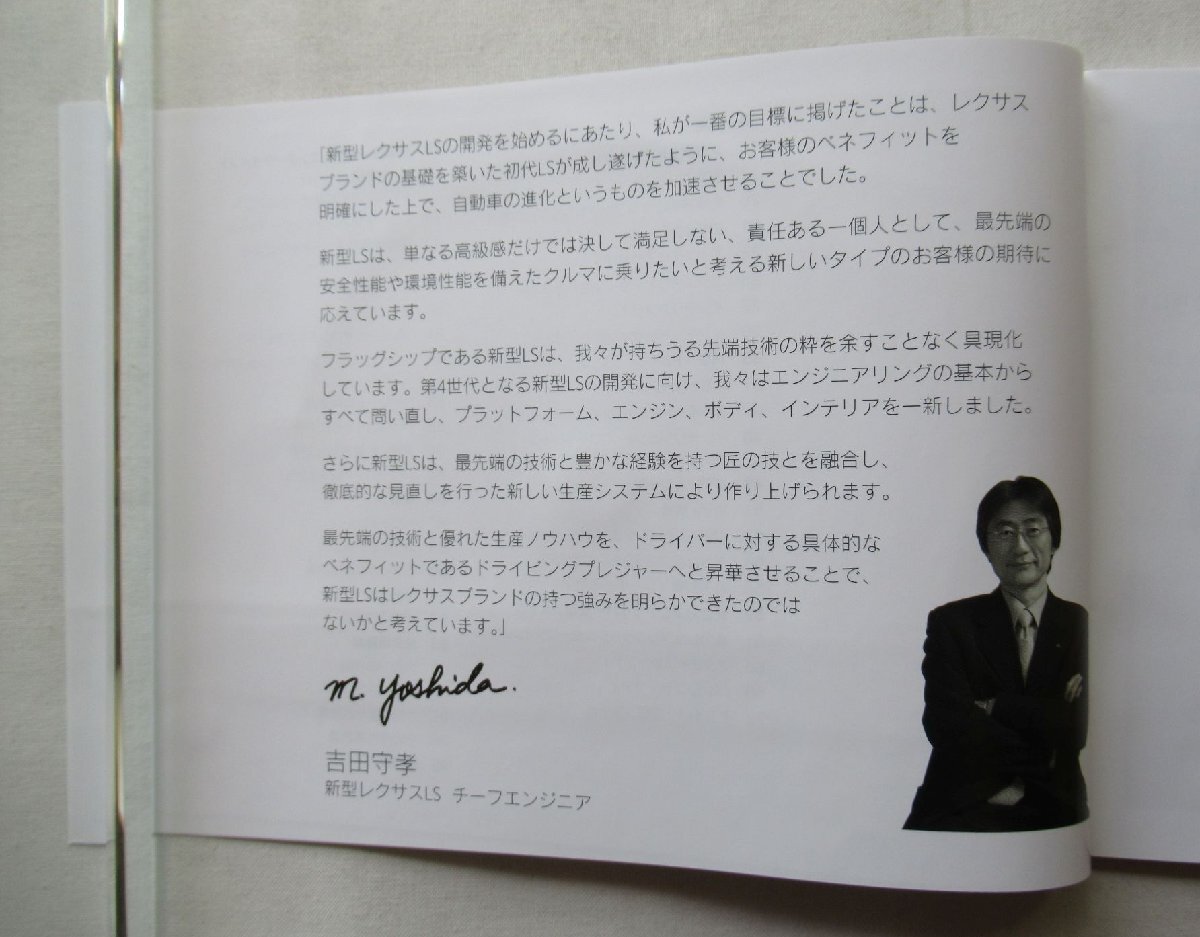 「新型レクサスLSの開発を始めるにあたり、私が一番の目標に掲げたことは、レクサス
ブランドの基礎を築いた初代LSが成し遂げたように、お客様のベネフィットを
明確にした上で、自動車の進化というものを加速させることでした。
新型LSは、単なる高級感だけでは決して満足しない、責任ある一個人として、最先端の
安全性能や環境性能を備えたクルマに乗りたいと考える新しいタイプのお客様の期待に
応えています。
フラッグシップである新型LSは、我々が持ちうる先端技術の粋を余すことなく具現化
しています。第4世代となる新型LSの開発に向け、我々はエンジニアリングの基本から
すべて問い直し、プラットフォーム、エンジン、ボディ、インテリアを一新しました。
さらに新型LSは、最先端の技術と豊かな経験を持つ匠の技とを融合し、
徹底的な見直しを行った新しい生産システムにより作り上げられます。
最先端の技術と優れた生産ノウハウを、ドライバーに対する具体的な
ベネフィットであるドライビングプレジャーへと昇華させることで、
新型LSはレクサスブランドの持つ強みを明らかできたのでは
ないかと考えています。」
m. yoshida.
吉田守孝
新型レクサスLS チーフエンジニア